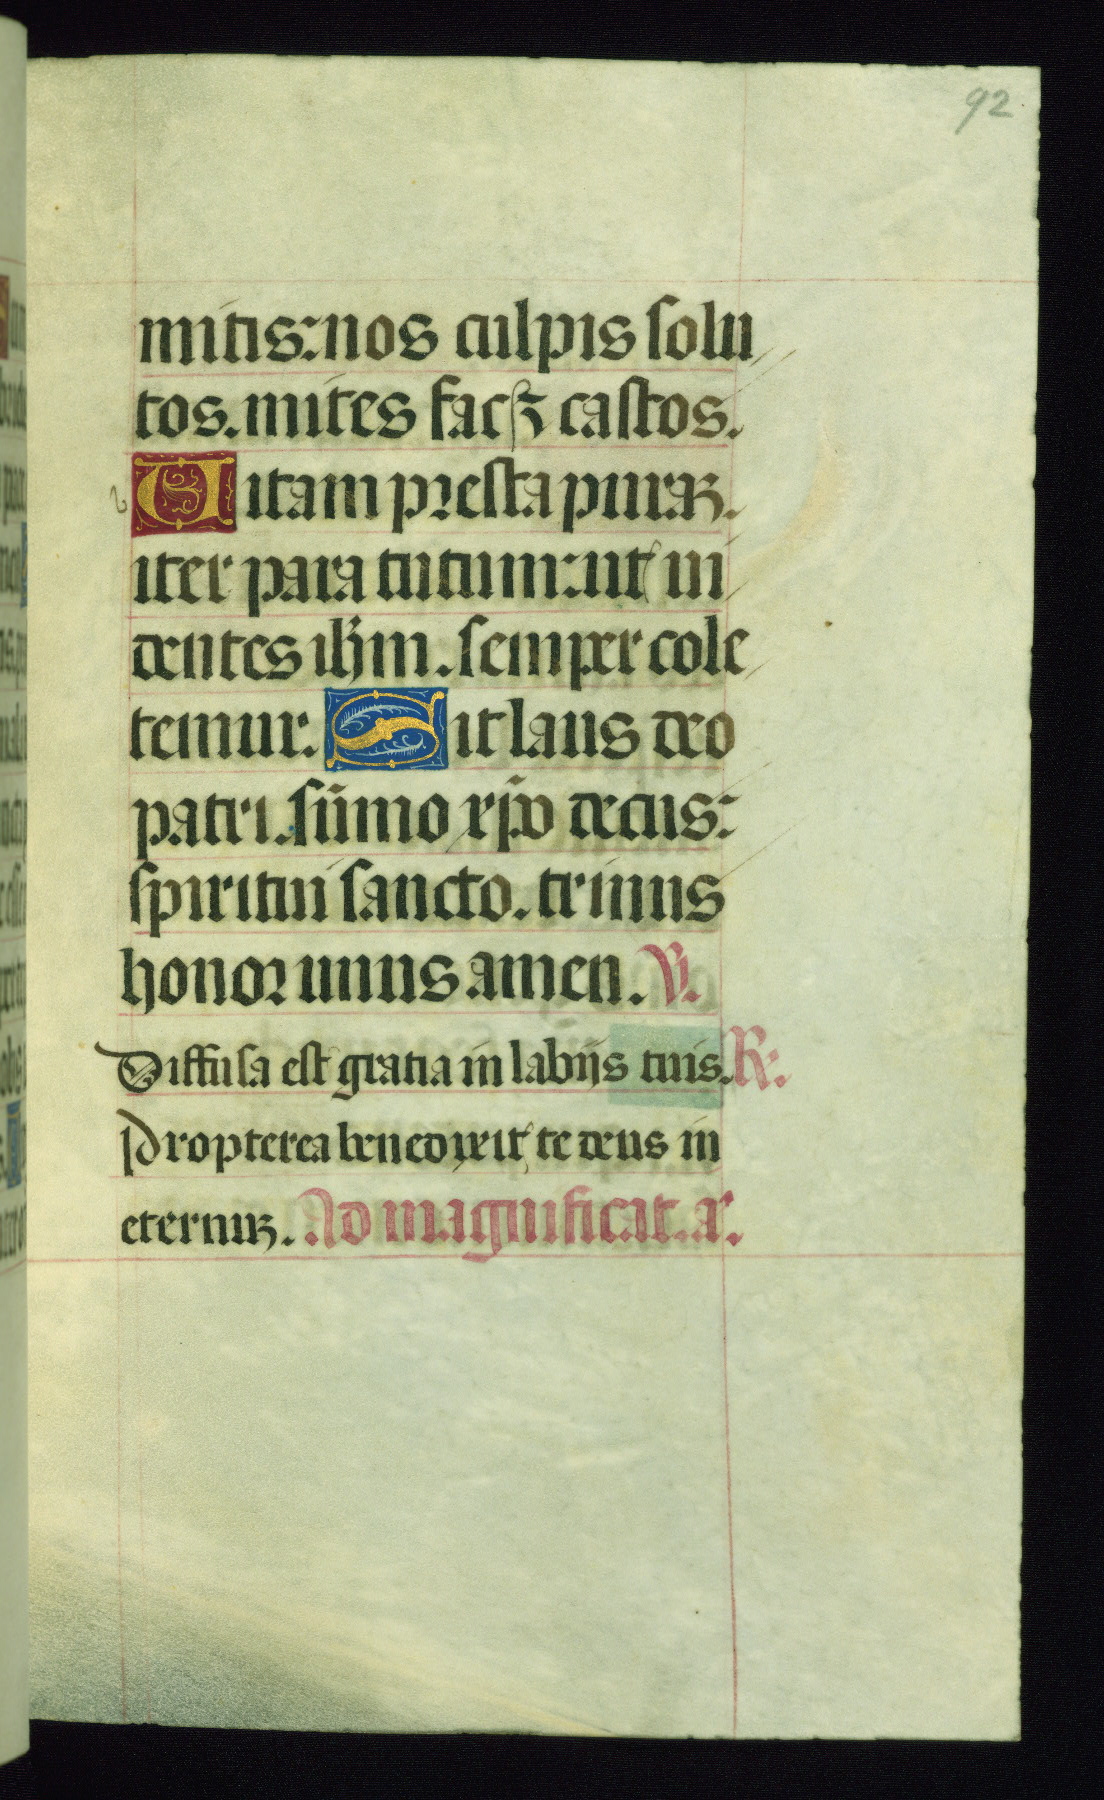 92
mitis: nos culpis solu
tos. mites fac ꝫ castos.
Uitam presta puraꝫ.
iter para tutum: ut ui
dentes ihm̄. semper cole
temur. Sit laus deo
patri. sūmo xp̄o decus:
spiritui sancto. trinus
honor unus amen. V.
Diffusa est gratia in labijs tuis. R.
Propterea benedixit te deus in
eternuꝫ. Ad magnificat. a͛.